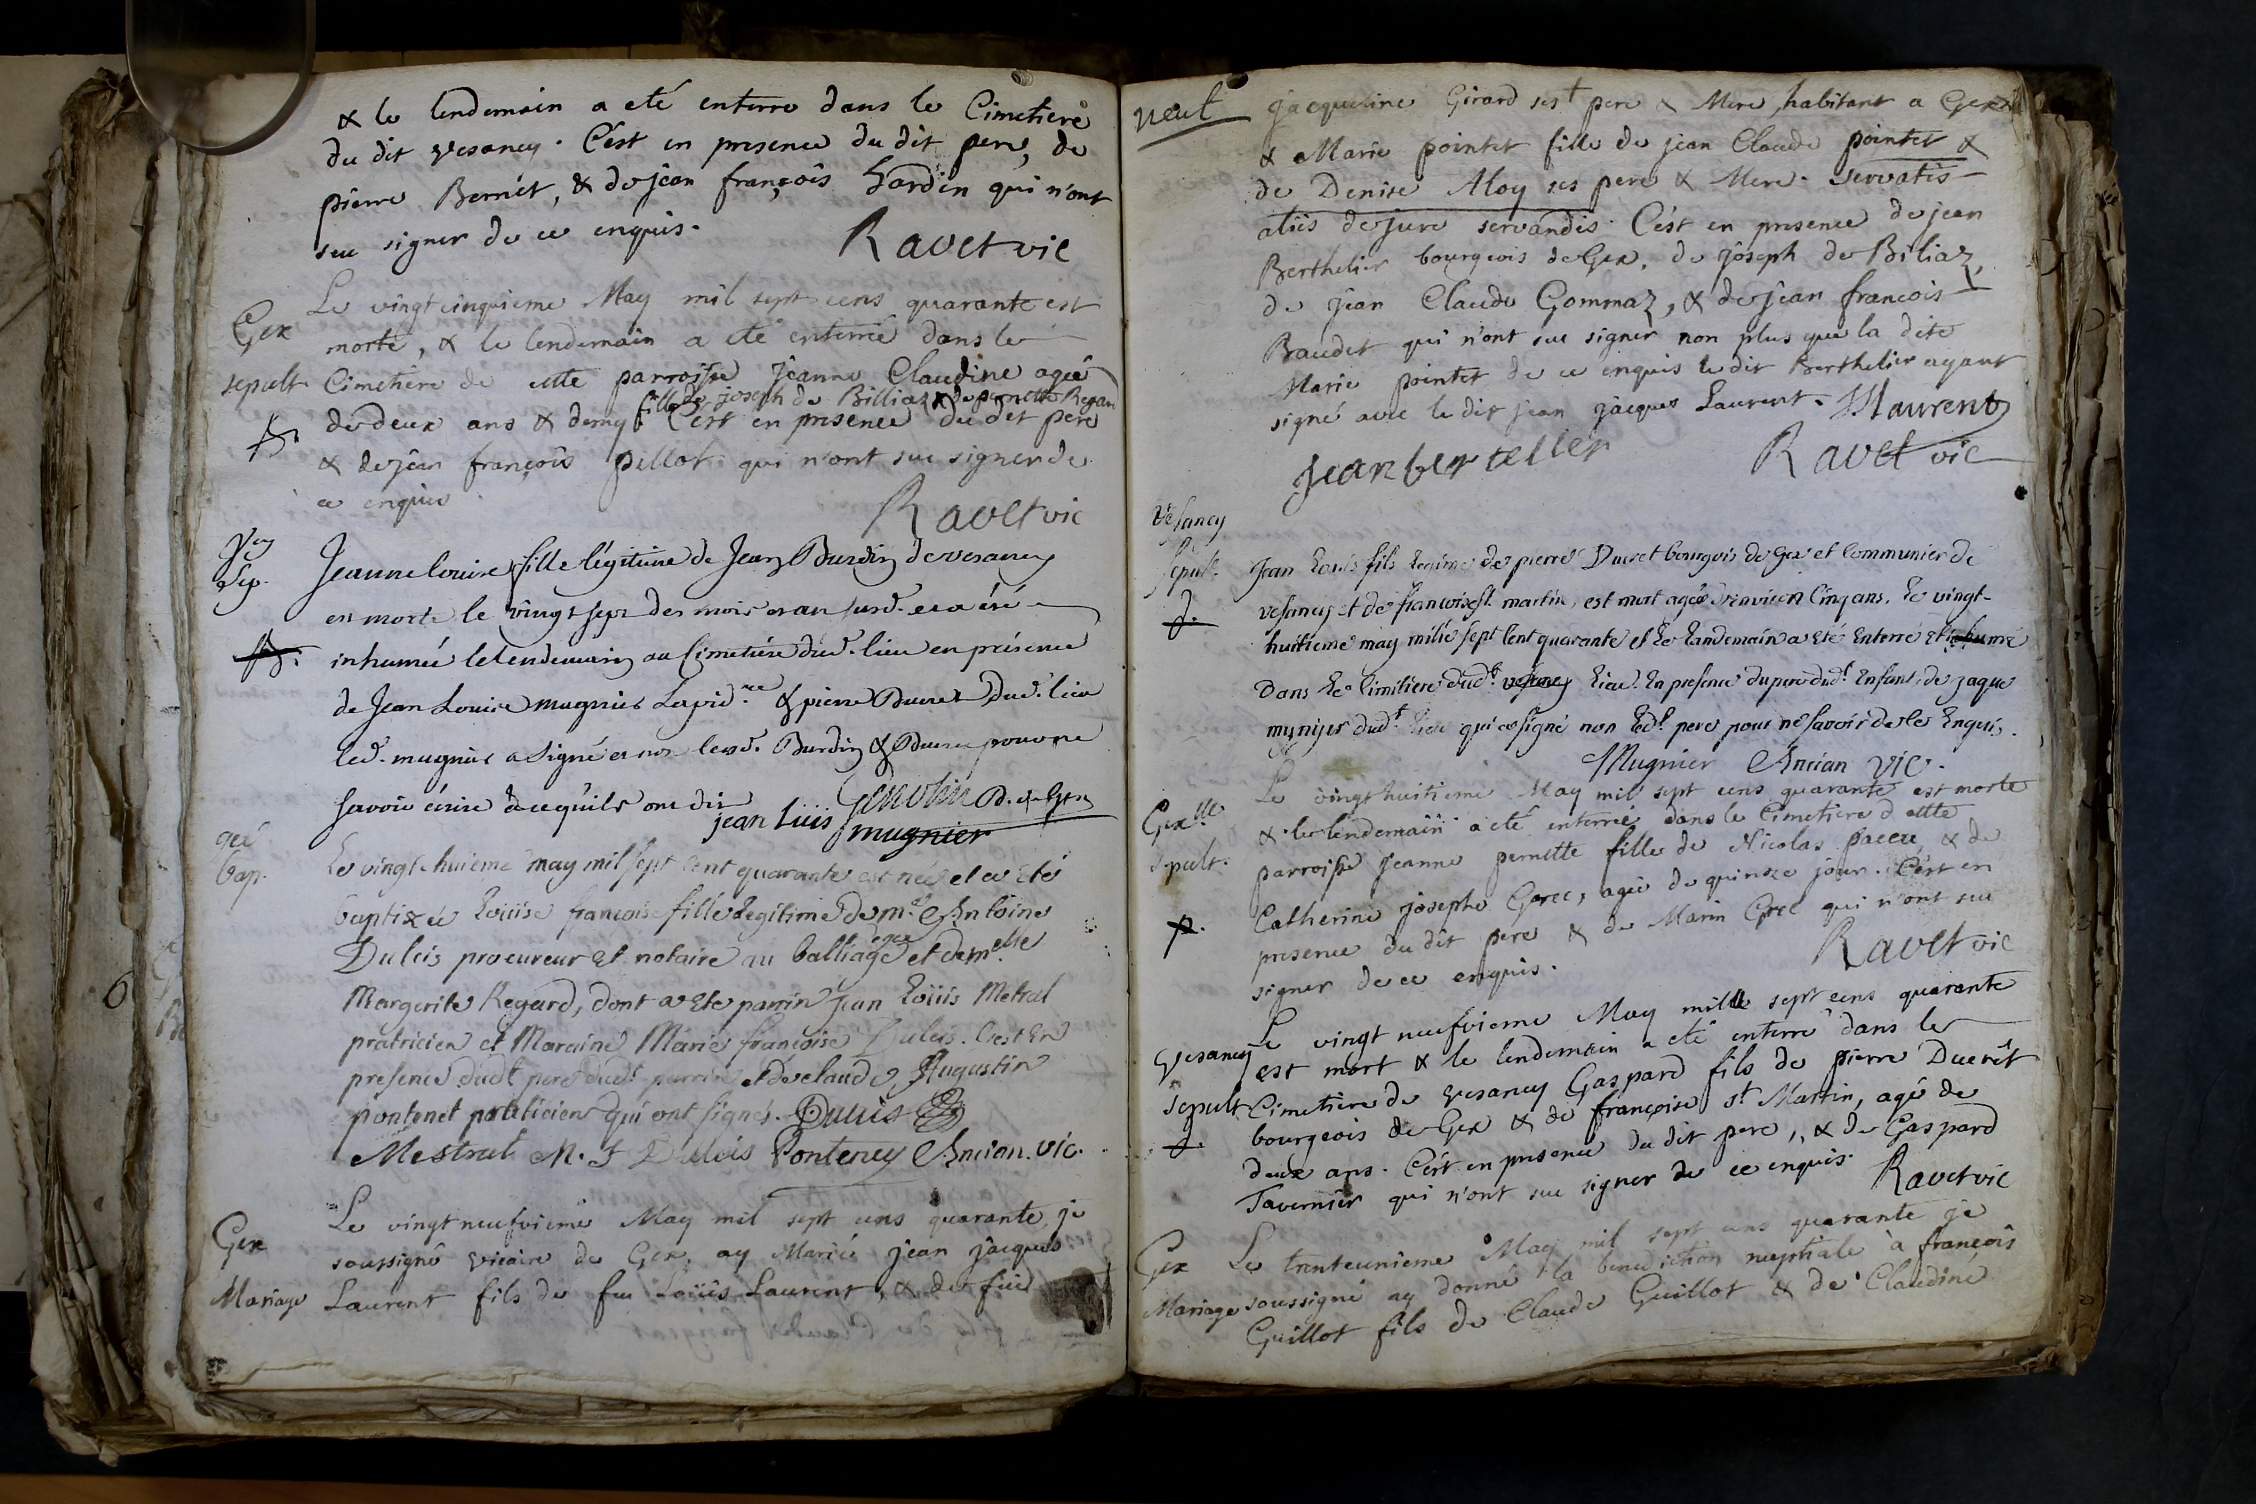 & le lendemain a eté enterre dans le Cimetiere
du dit vesancy. C'ést en presence du dit pere, de
pierre Bernét, & de jean françoîs hardin qui n'ont
seu signer de ce enquis.
Ravet vic
Gex
sepult
Le vingtcinquieme May mil sept cens quarante est
morte, & le lendemain a eté enterrée dans le
Cimetiere de cette parroisse Jeanne Claudine agée
fille de joseph de Billiaz & de pernette Regard
de deux ans & demy. C'ést en presence du dit pere
& de jêan françoîs pillot qui n'ont seu signer de
ce enquis
Ravet vic
Vcy
Sep.
Jeanne louise fille légitime de Jean Burdin de vesancy
est morte le vingt sept des mois et an susd. et a été
inhumée le lendemain au Cimetiére dud. lieu en présence
de Jean Louis mugnier Lapid.re & pierre Ducret dud. lieu
led. mugnier a signé et non lesd. Burdin & Ducret pour ne
savoir écrire de ce qu'ils ont dit
jean luis mugnier
gex
bap.
Le vingt-huieme may mil sept cent quarante est née et a Eté
baptizée Loüise françoise fille Legitime de m.e Antoine
Dulcis procureur et notaire au balliage de gex et dem.elle
Margerite Regard, dont a Ete parrin jean Loüis Metral
pratricien et Maraine Marie françoise Dulcis. C'est En
presence dudt pere dudt parrin et de claude Augustin
pontenet patricien qui ont signés. Dulcis
Mestral M. F Dulcis Ponteney Ancian. vic.
Gex
Mariage
Le vingtneufvieme May mil sept cens quarante, je
soussigné vicaire de Gex, ay Marié jean jâcques
Laurent fils de feu Loüis Laurent, & de füe
neuf
jâcqueline Girard ses pere & Mere, habitant a Gex
& Marie pointet fille de jean Claude pointet &
de Denise Moy ses pere & Mere. servatis
aliis de jure servandis. C'ést en presence de jean
Berthelier bourgeois de Gex, de jôseph de Biliaz,
de jean Claude Gommaz, & de jean francois
Baudet qui n'ont seu signer non plus que la dite
Marie pointet de ce enquis le dit Berthelier ayant
signé avec le dit jean jacques Laurent. JJ laurent
jean bertellier
Ravet vic
Vesancy
sepult
Jean Louis fils legime de pierre Ducret bourgois de gex et Communier de
vesancy et de francoise st. martin, est mort agé d'environ Cinq ans. Le vingt-
huitieme may mille sept Cent quarante et Le Landemain a Eté Enterré et inhumé
Dans Le Cimitiere dudt. vesancy Lieu. En presence du pere dudt. Enfant, de jaque
mynijer dudt. Lieu qui a signé non Ledt. pere pour ne savoir de ce Enquis.
Mugnier Ancian vic.
Gex
sepult.
Le vingthuitieme May mil sept cens quarante est morte
& le lendemain a eté enterrée dans le Cimetiere d cette
parroisse Jeanne pernette fille de Nicolas paccu, & de
Catherine josephe Grec, agée de quinze jour. C'ést en
presence du dit pere & de Marin Grec qui n'ont seu
signer de ce enquis.
Ravet vic
Vesancy
sepult
Le vingt neufvieme May mille sept cens quarante
est mort & le lendemain a eté enterré dans le
Cimetiere de vesancy Gaspard fils de pierre Ducrêt
bourgeois de Gex & de françoise st Martin, agé de
deux ans. C'ést en presence du dit pere, & de Gaspard
Tavernier qui n'ont seu signer de ce enquis.
Ravet vic
Gex
Mariage
Le trenteunieme May mil sept cens quarante je
soussigné ay donné la benediction nuptiale à françoîs
Guillot fils de Claude Guillot & de Claudine